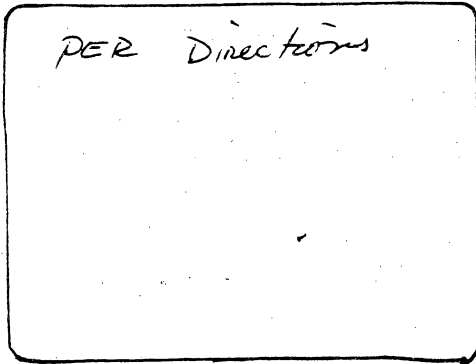 PER Directions